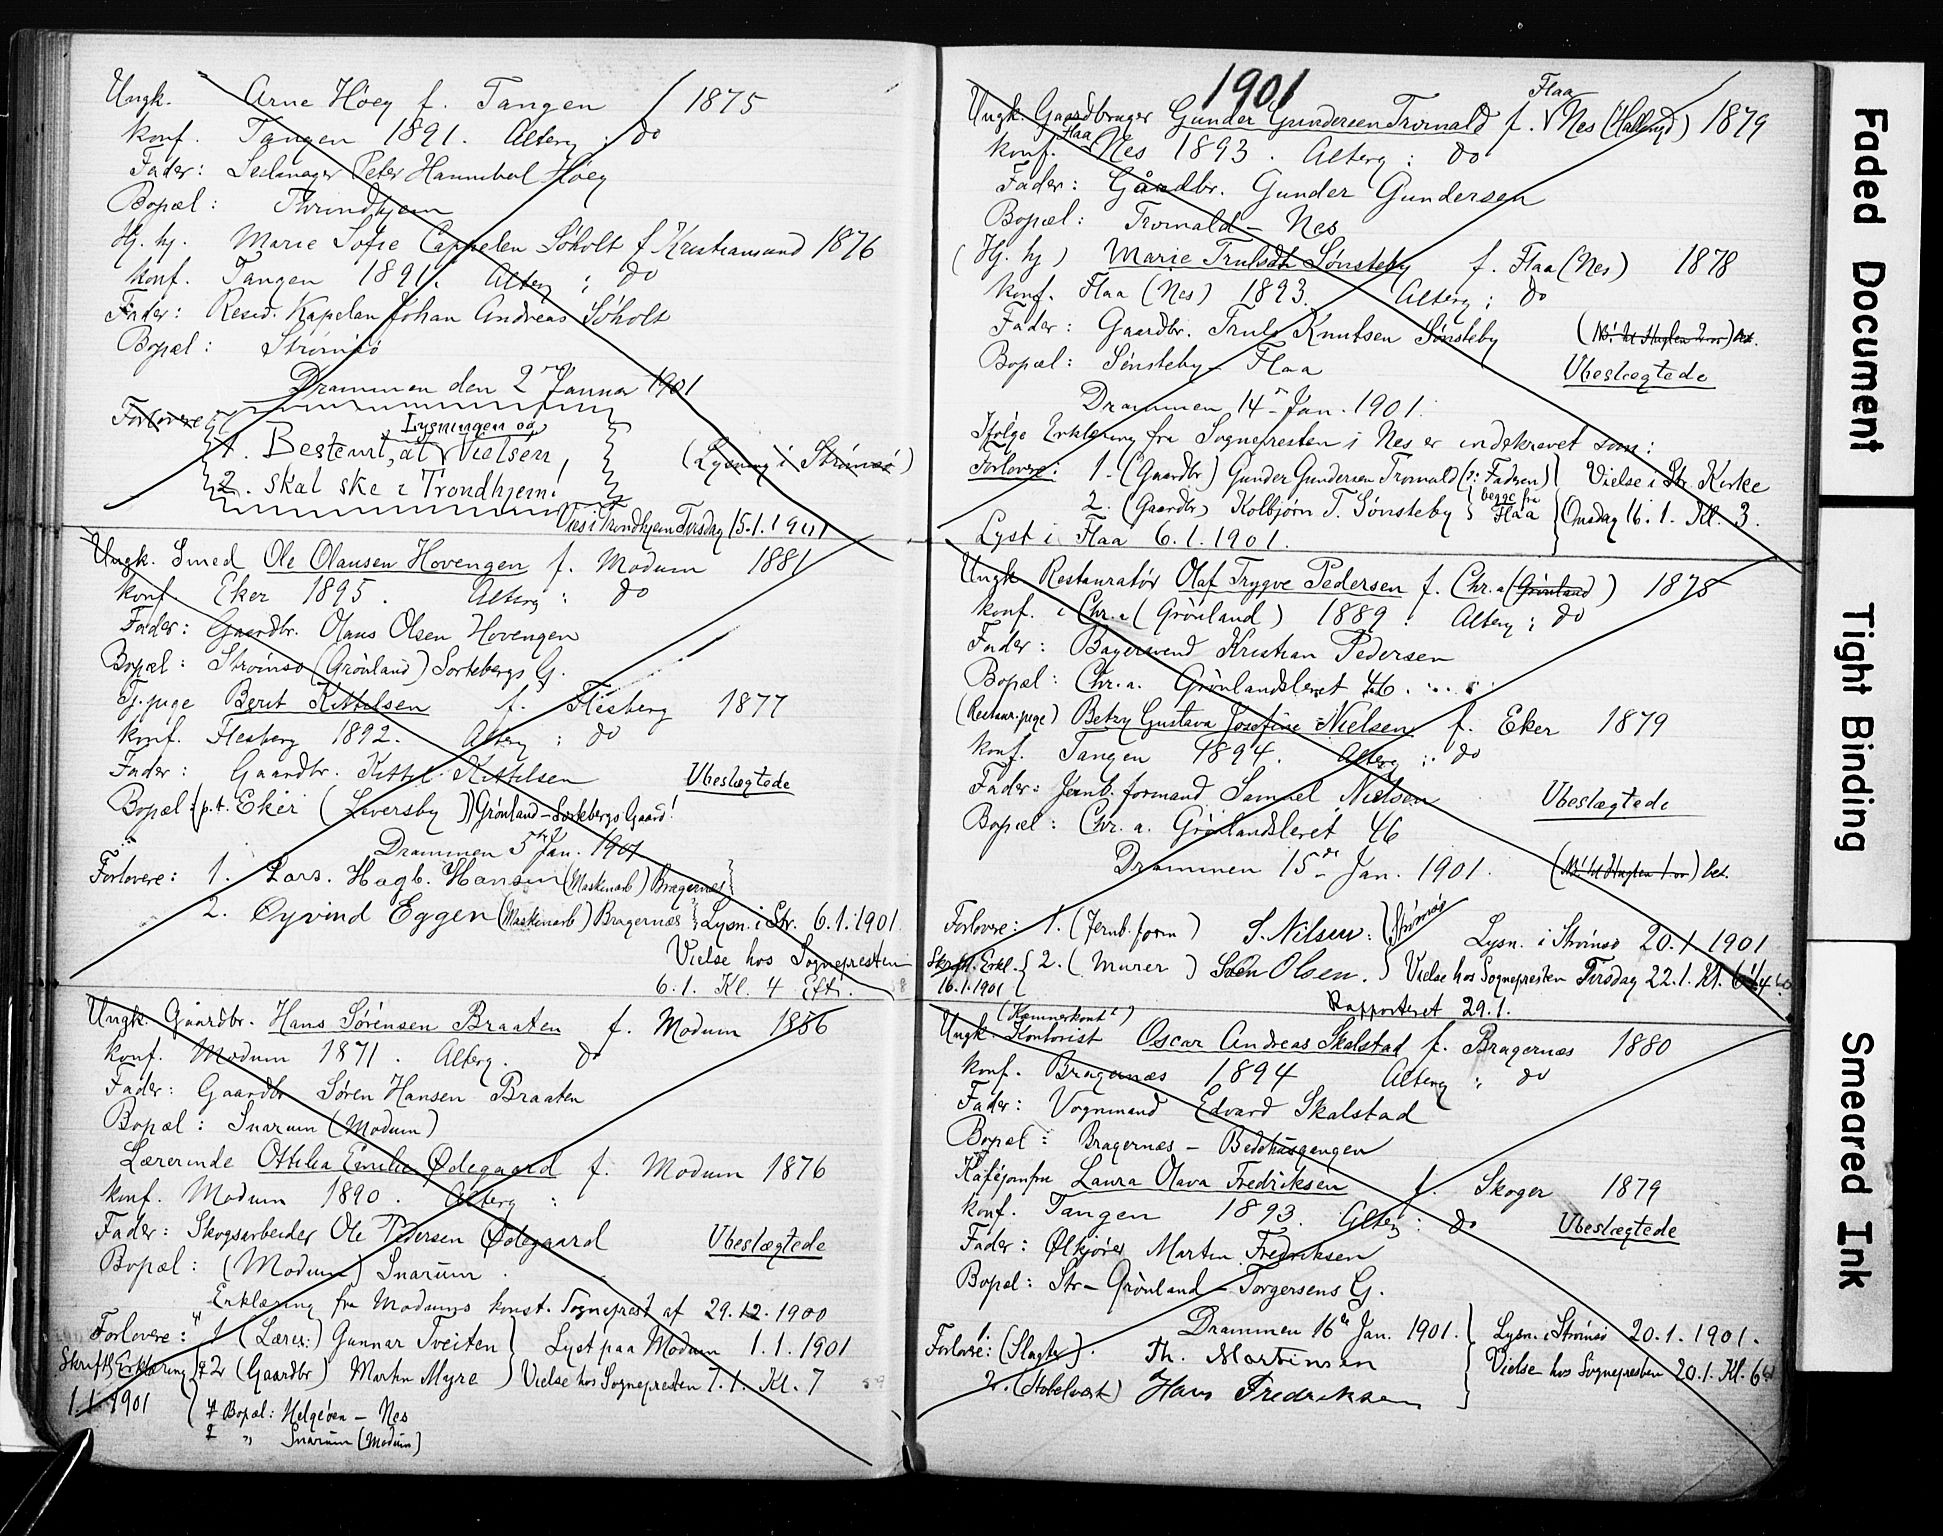 Ungk. Arne Höeg f. Tangen 1875
konf. Tangen 1891. Alterg : do
Fader: Peter Hannibal Höeg
Bopæl: Throndhjem
Hj. hj. Marie Sofie Cappelen Söholt f. Kristiansund 1876
konf. Tangen 1891. Alterg : do
Fader: Resid. Kapelan Johan Andreas Söholt
Bopæl: Strømsö
Drammen den 2 Janua 1901
Forlovere
Lysningen og
1. Bestemt, at Vielsen,
2. skal ske i Trondhjem!
(Lysning i Strömsö)
Vies i Trondhjem Tirsdag 15.1.1901
Ungk. Smed Ole Olausen Hovengen f. Modum 1881
konf. Eker 1895. Alterg : do
Fader: Gaardbr. Olaus Olsen Hovengen
Bopæl: Strömsö (Grönland) Sortebergs G.
Tj. pige Berit Kittilsen f. Flesberg 1877
konf. Flesberg 1892. Alterg : do
Fader: Gaardbr. Kittil Kittilsen
Ubeslægtede
Bopæl: (p.t. Eker (Leversby)) Grönland - Sortebergs Gaard!
Drammen 5 Jan. 1901
Forlovere: 1. Lars. Hagb. Hansen (Maskinarb) Bragernes
2. Øyvind Eggen (Maskinarb) Bragernæs } Lysn. i Str. 6.1.1901
Vielse hos Sognepresten
6.1. Kl. 4 Eft.
Ungk. Gaardbr. Hans Sörensen Braaten f. Modum 1856
konf. Modum 1871. Alterg. do
Fader: Gaardbr Sören Hansen Braaten
Bopæl: Snarum (Modum)
Lærerinde Ottilia Emilie Ødegaard f. Modum 1876
konf. Modum 1890. Alterg :
Fader: Skogsarbeider Ole Pedersen Ødegaard
Ubeslægtede
Bopæl: (Modum) Snarum.
Erklæring fra Modums konst. Sogneprest af 29.12.1900
Forlovere: 1 (Lærer) Gunnar Tveiten } Lyst paa Modum 1.1.1901
Skriftl. Erklæring 2 (Gaardbr) Martin Myre } Vielse hos Sognepresten 7.1. Kl. 7
1.1.1901
1 Bopæl: Helgöen - Nes
2 " Snarum (Modum)
1901
Flaa
Ungk. Gaardbruger Gunder Gundersen Tromald f. Nes (Hallingd) 1879
Flaa
konf. Nes 1893. Alterg : do
Fader: Gårdbr. Gunder Gundersen
Bopæl: Tromald - Nes
(Hj. hj) Marie Trulsdt Sønsteby f. Flaa (Nes) 1878
konf. Flaa (Nes) 1893. Alterg : do
Fader: Gaardbr. Truls Knutsen Sønsteby
Bopæl: Sønsteby - Flaa
Ubeslægtede
Drammen 14 Jan. 1901.
Ifølge Erklæring fra Sognepresten i Nes er indskrevet som:
Forlovere: 1. (Gaardbr) Gunder Gundersen Tromald (: Faderen) } Vielse i Str. Kirke
2. (Gaardbr) Kolbjørn T. Sønsteby } begge fra Flaa } Onsdag 16.1. Kl. 3.
Lyst i Flaa 6.1.1901.
Ungk. Restauratör Olaf Trygve Pedersen f. Chr.a (Grönland) 1875
konf. i Chr.a (Grönland) 1889. Alterg : do
Fader: Bagersvend Kristian Pedersen
Bopæl: Chr.a. Grönlandsleret 46.
(Restaur. pige) Betzy Gustava Josefine Nielsen f. Eker 1879
konf. Tangen 1894. Alterg : do
Fader: Jernb. formand Samuel Nielsen
Ubeslægtede
Bopæl: Chr.a. Grönlandsleret 46
Drammen 15 Jan. 1901.
Forlovere: 1. (Jernb. form) S. Nilsen. } Strömsö Lysn. i Strömsö 20.1.1901
Skriftl. Erkl. { 2. (Murer) Sven Olsen. } Vielse hos Sognepresten Tirsdag 22.1. Kl.
16.1.1901
Rapporteret 29.1.
(Kæmnerkont)
Ungk. Kontorist Oscar Andreas Skalstad f. Bragernæs 1880
konf. Bragernæs 1894 Alterg " do
Fader: Vognmand Edvard Skalstad
Bopæl: Bragernæs - Bedehusgangen
Kaféjomfru Laura Olava Fredriksen f. Skoger 1879
konf. Tangen 1893. Alterg : do
Ubeslægtede
Fader: Ølkjører Martin Fredriksen
Bopæl: Str - Grönland - Torgersens G.
Drammen 16 Jan. 1901. } Lysn. i Strömsö 20.1.1901.
Forlovere: 1. (Slagter). Th. Martinsen
Vielse hos Sognepresten 20.1. Kl. 6
2. Hans Fredriksen
Faded Document
Tight Binding
Smeared Ink